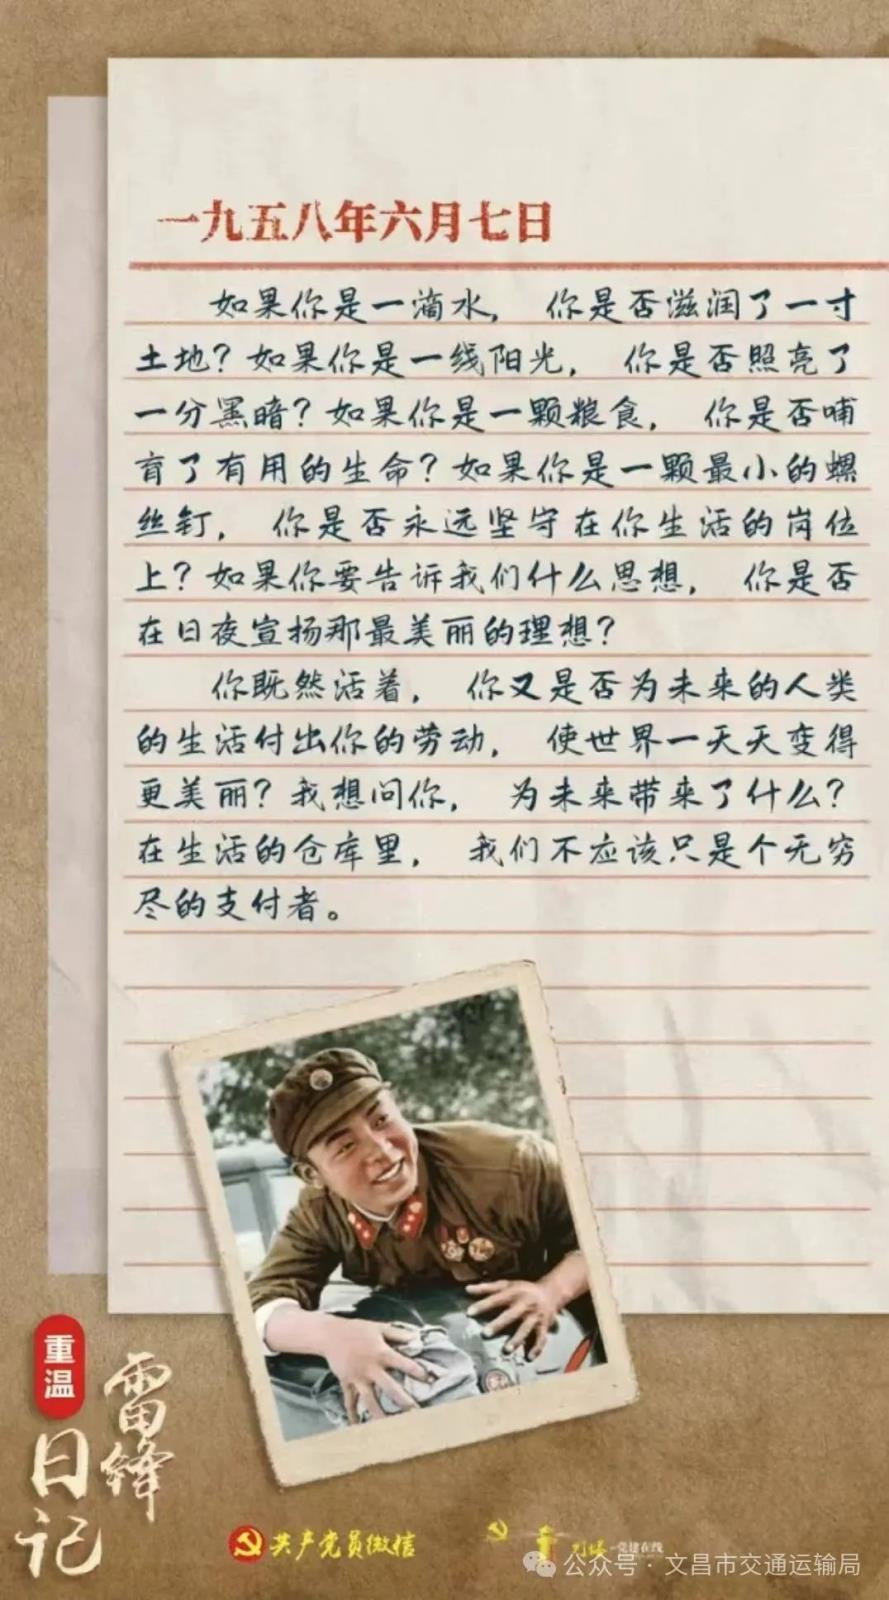 一九五八年六月七日
如果你是一滴水，你是否滋润了一寸
土地？如果你是一线阳光，你是否照亮了
一分黑暗？如果你是一颗粮食，你是否哺
育了有用的生命？如果你是一颗最小的螺
丝钉，你是否永远坚守在你生活的岗位
上？如果你要告诉我们什么思想，你是否
在日夜宣扬那最美丽的理想？
你既然活着，你又是否为未来的人类
的生活付出你的劳动，使世界一天天变得
更美丽？我想问你，为未来带来了什么？
在生活的仓库里，我们不应该只是个无穷
尽的支付者。
重温
雷锋
日记
共产党员微信
党建在线
公众号·文昌市交通运输局